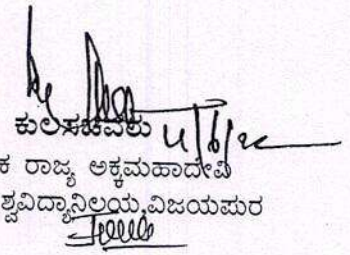 ಕುಲಸಚಿವರು
ಕ ರಾಜ್ಯ ಅಕ್ಕಮಹಾದೇವಿ
ಶ್ವವಿದ್ಯಾನಿಲಯ,ವಿಜಯಪುರ